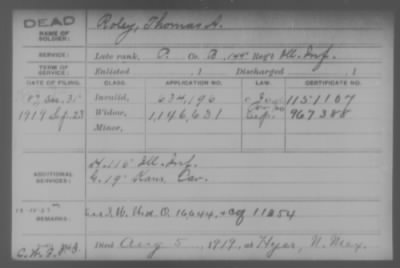 DEAD
NAME OF SOLDIER: Roley, Thomas A.
SERVICE: Late rank, P. Co. B, 144 Reg't Ill. Inf.
TERM OF SERVICE: Enlisted , 1 Discharged , 1
DATE OF FILING. CLASS. APPLICATION NO. LAW. CERTIFICATE NO.
Dec. 31 Invalid, 634,196 1151107
1919 Sep. 23 Widow, 1,146,631 967388
Minor,
ADDITIONAL SERVICES:
H. 115 Ill. Inf.
G. 19 Kans. Cav.
REMARKS: S.W. Und. O. 16,644, + Cg 11254
Died Aug 5, 1919, at Hyer, N. Mex.